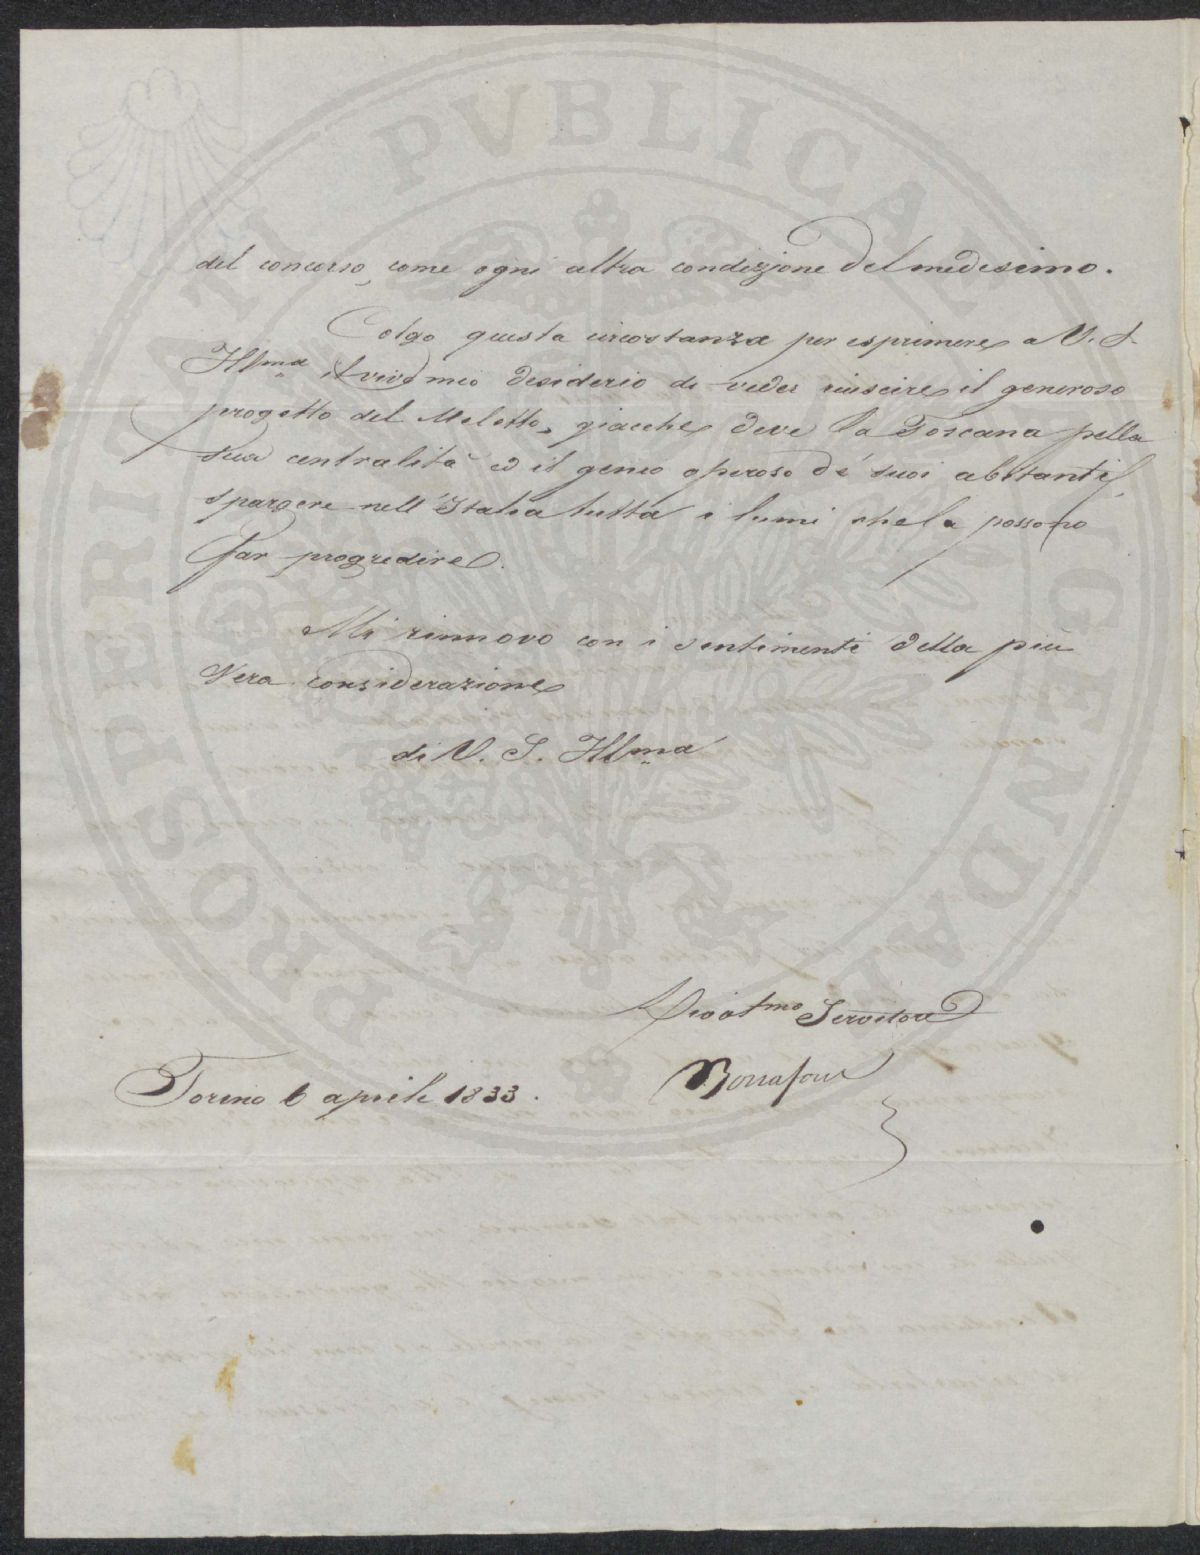 del concorso, come ogni altra condizione del medesimo.
Colgo questa circostanza per esprimere a V. S.
Illma il vivo mio desiderio di veder riuscire il generoso
progetto del Meloto, giacchè deve la Toscana pella
sua centralità ed il genio operoso de' suoi abitanti
spargere nell'Italia tutta i lumi che la possono
far progredire.
Mi rinnovo con i sentimenti della più
Vera considerazione
di V. S. Illma
Devotmo Servitore
Bonafous
Torino 6 aprile 1833.
PROSPERITATI PVBLICAE AVGENDAE